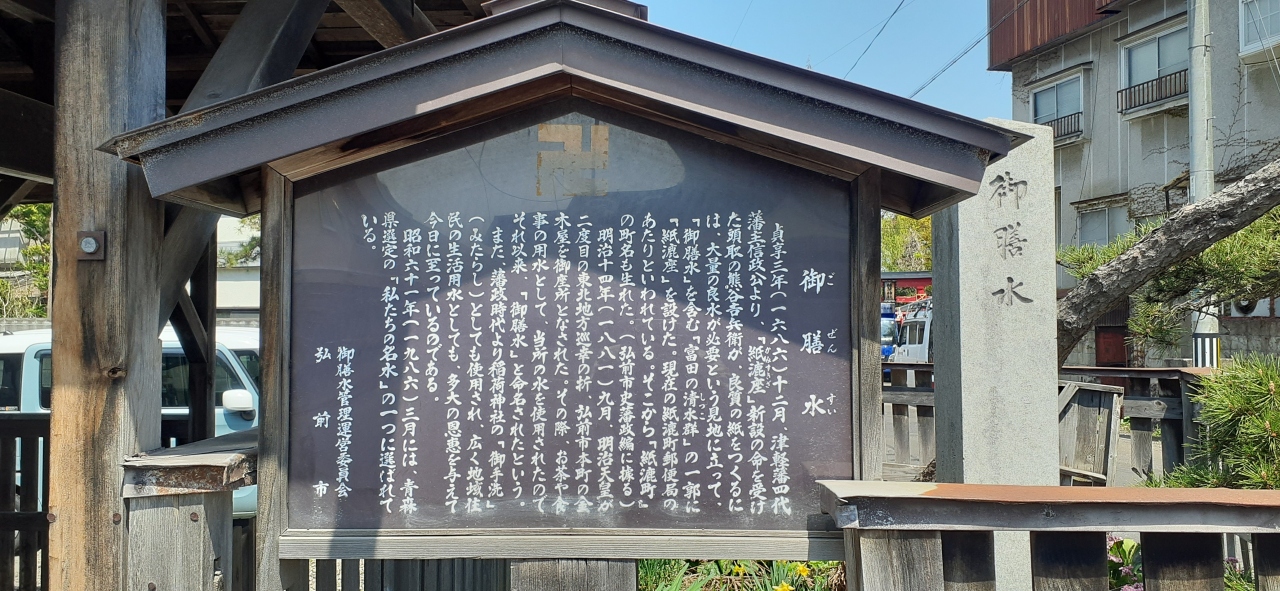 御膳水
ごぜんすい
貞享三年(一六八六)十二月、津軽藩四代
藩主信政公より、「紙漉座」新設の命を受け
た頭取の熊谷吾兵衛が、良質の紙をつくるに
は、大量の良水が必要という見地に立って、
「御膳水」を含む「富田の清水群」の一郭に
「紙漉座」を設けた。現在の紙漉町郵便局の
あたりといわれている。そこから「紙漉町」
の町名も生れた。(弘前市史藩政編に據る)
明治十四年(一八八一)九月、明治天皇が
二度目の東北地方巡幸の折、弘前市本町の金
木屋を御座所となされた。その際、お茶や食
事の用水として、当所の水を使用されたので
それ以来、「御膳水」と命名されたという。
また、藩政時代より稲荷神社の「御手洗」
(みたらし)としても使用され、広く地域住
民の生活用水としても、多大の恩恵を与えて
今日に至っているのである。
昭和六十一年(一九八六)三月には、青森
県選定の「私たちの名水」の一つに選ばれて
いる。
御膳水管理運営委員会
弘前市
御膳水